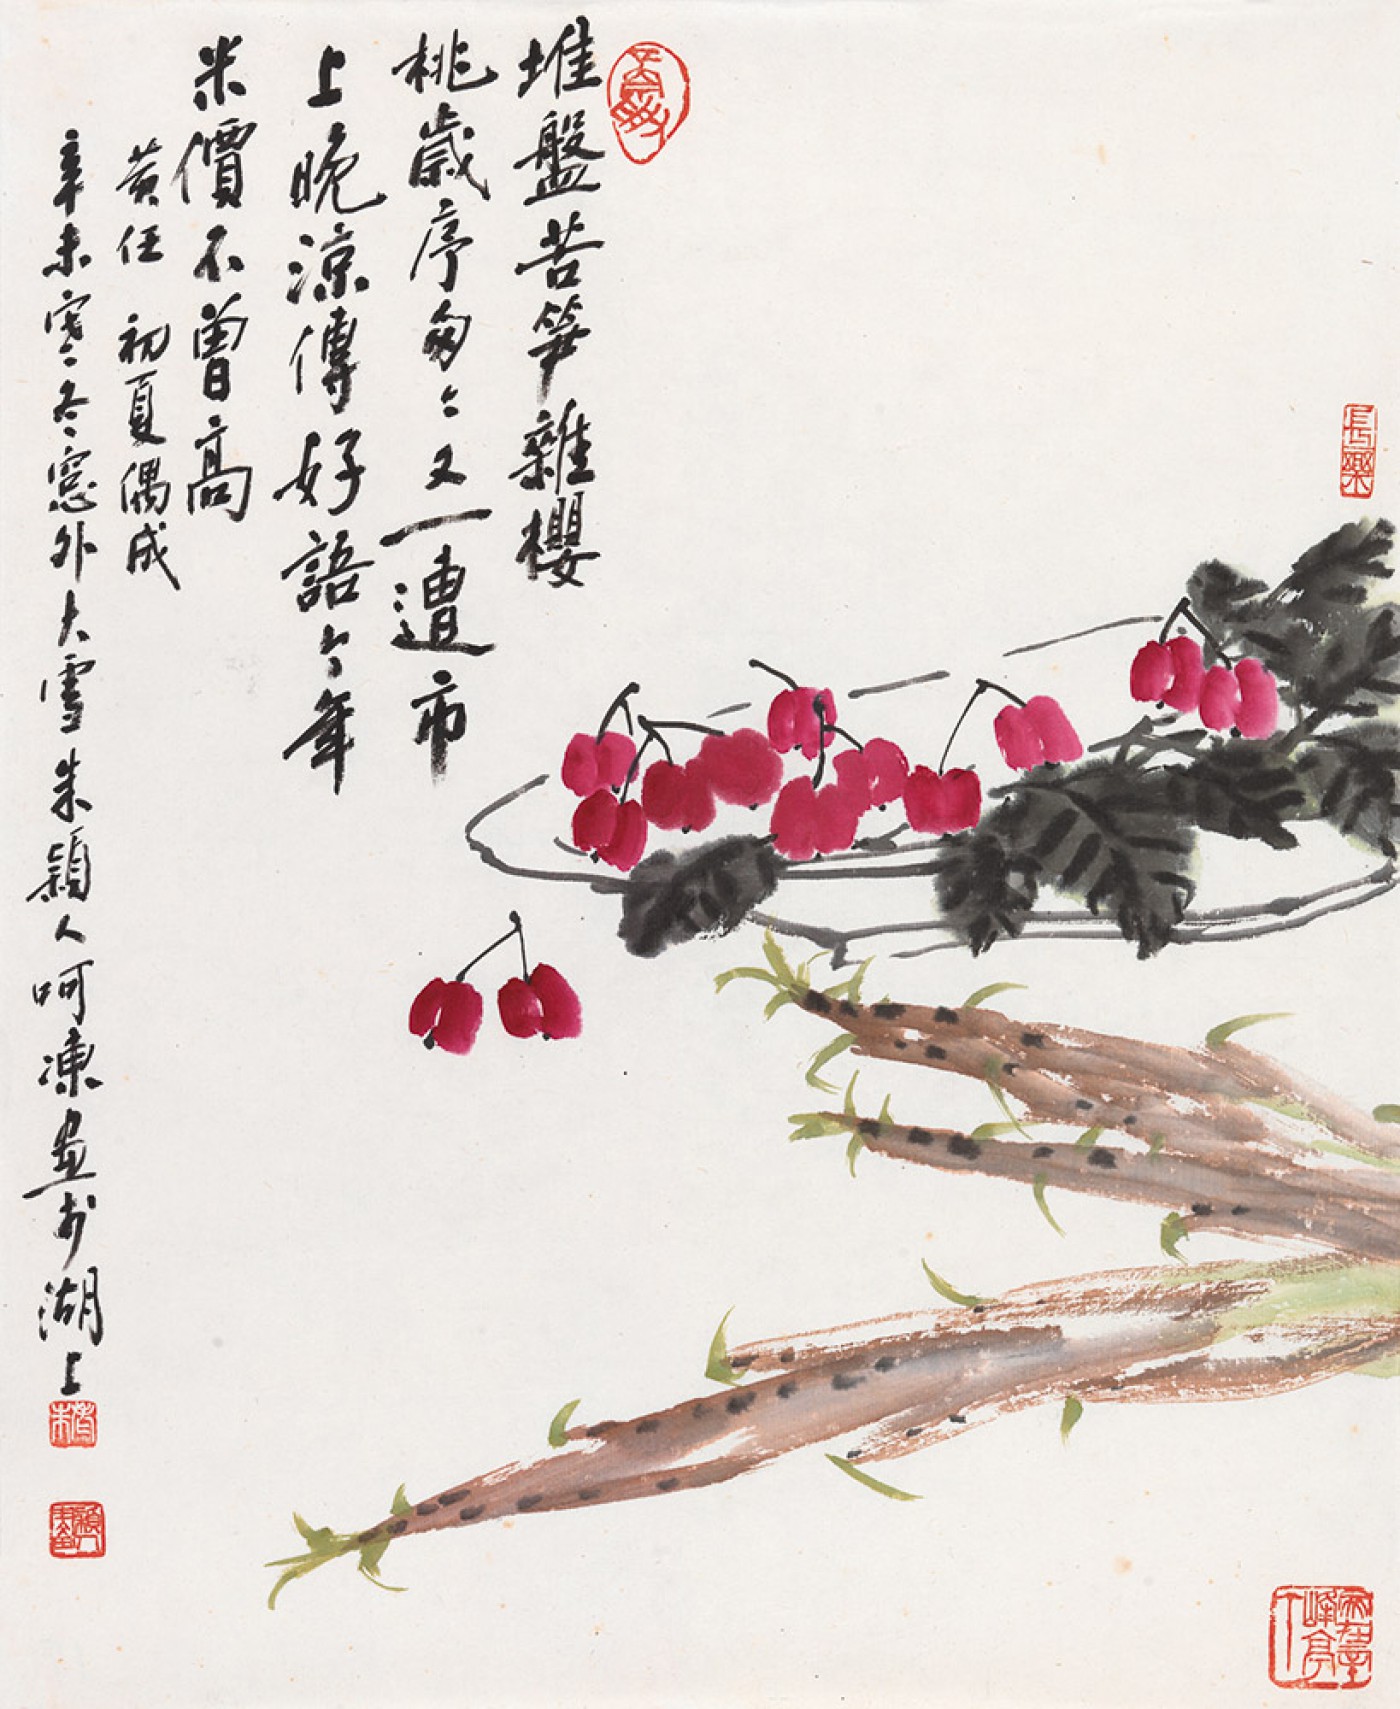 堆盤苦笋雜櫻
桃歲序匆々又一遭市
上晚涼傳好語今年
米價不曾高
黃任 初夏偶成
辛未寒冬窓外大雪朱穎人呵凍畫於湖上
長樂